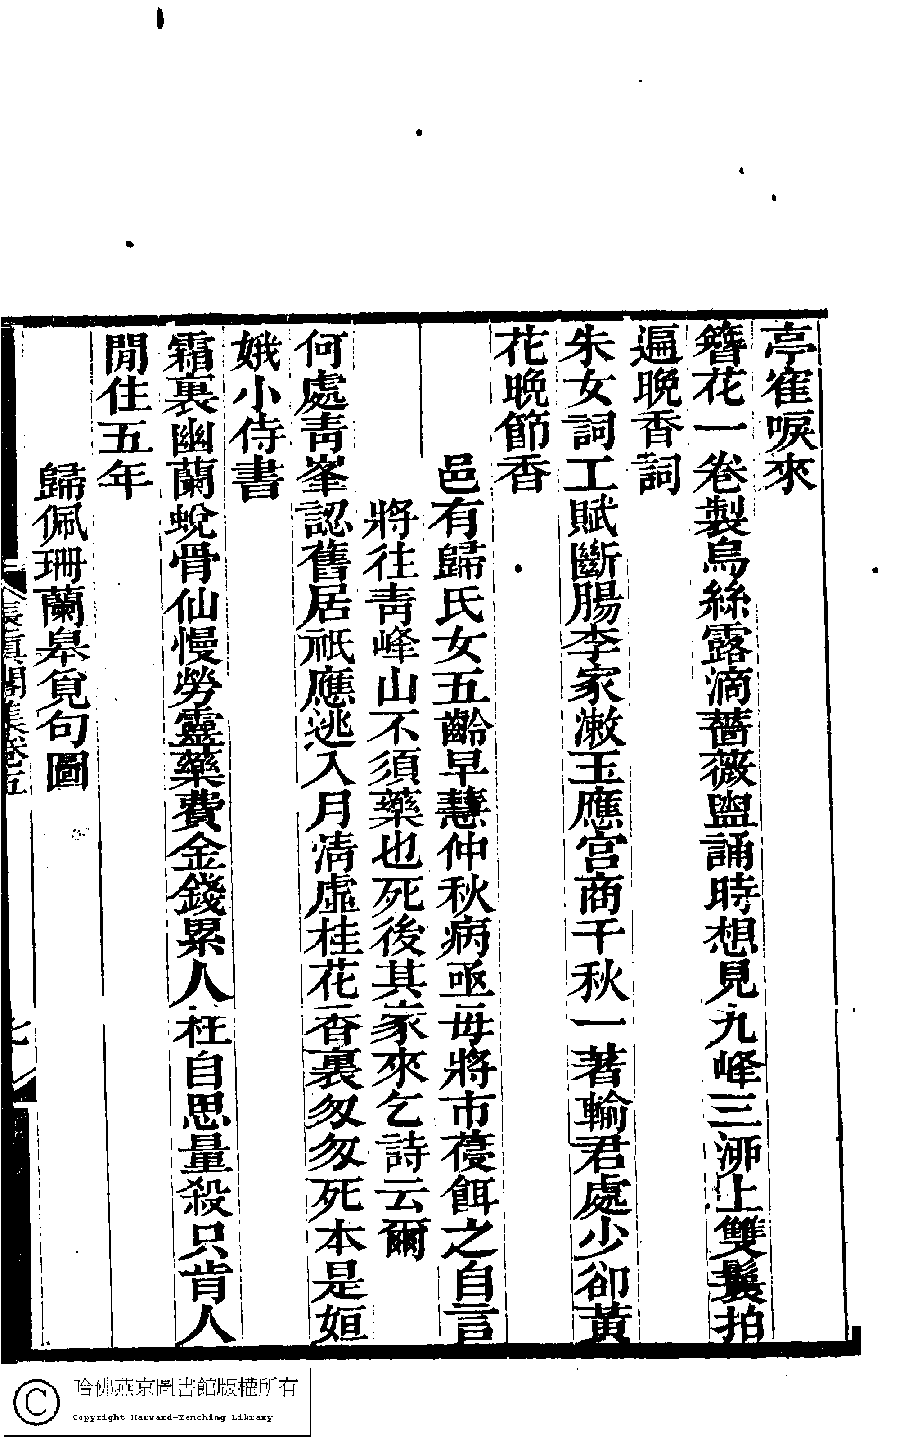 亭隺唳來
簪花一卷製烏絲露滴薔薇盥誦時想見九峰三泖上雙鬟拍
遍晚香詞
朱女詞工賦斷腸李家漱玉應宫商千秋一著輸君處少卻黃
花晚節香
邑有歸氏女五齡早慧仲秋病亟毋將市葠餌之自言
將往青峰山不須藥也死後其家來乞詩云爾
何處青峯認舊居祇應逃入月清虛桂花香裏匆匆死本是姮
娥小侍書
霜裏幽蘭蛻骨仙慢勞靈藥費金錢累人枉自思量殺只肯人
閒住五年
歸佩珊蘭皋覓句圖
長眞閣集卷五
七
哈佛燕京圖書館版權所有
Copyright Harvard-Yenching Library